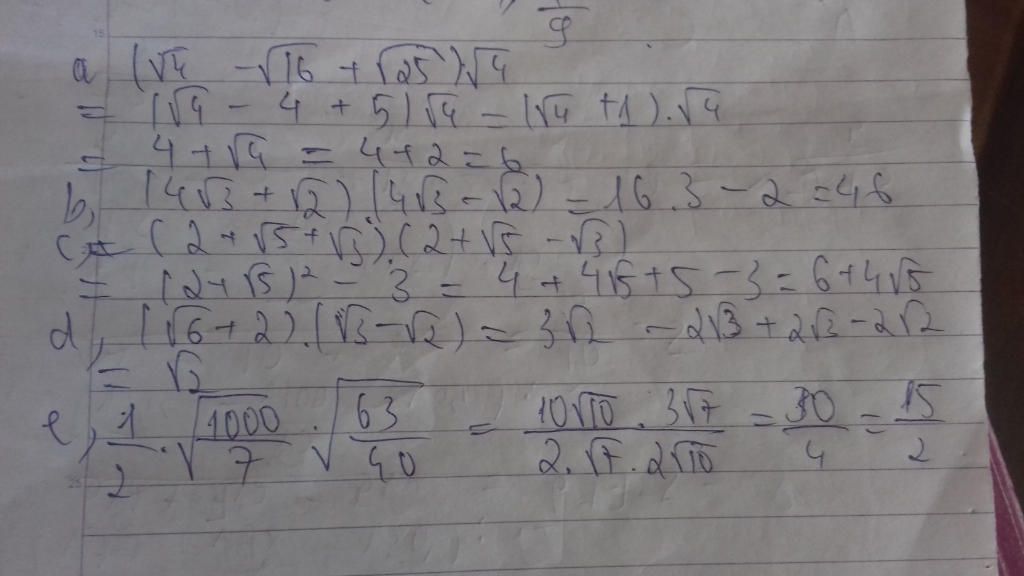 9
a (√4 - √16 + √25)√4
= (√4 - 4 + 5)√4 = (√4 + 1).√4
= 4 + √4 = 4 + 2 = 6
b, (4√3 + √2).(4√3 - √2) = 16.3 - 2 = 46
c, = (2 + √5 + √3).(2 + √5 - √3)
= (2 + √5)² - 3 = 4 + 4√5 + 5 - 3 = 6 + 4√5
d, (√6 + 2).(√3 - √2) = 3√2 - 2√3 + 2√3 - 2√2
= √2
e, 1/2 . √(1000/7) . √(63/40) = (10√10 . 3√7)/(2.√7.2√10) = 30/4 = 15/2